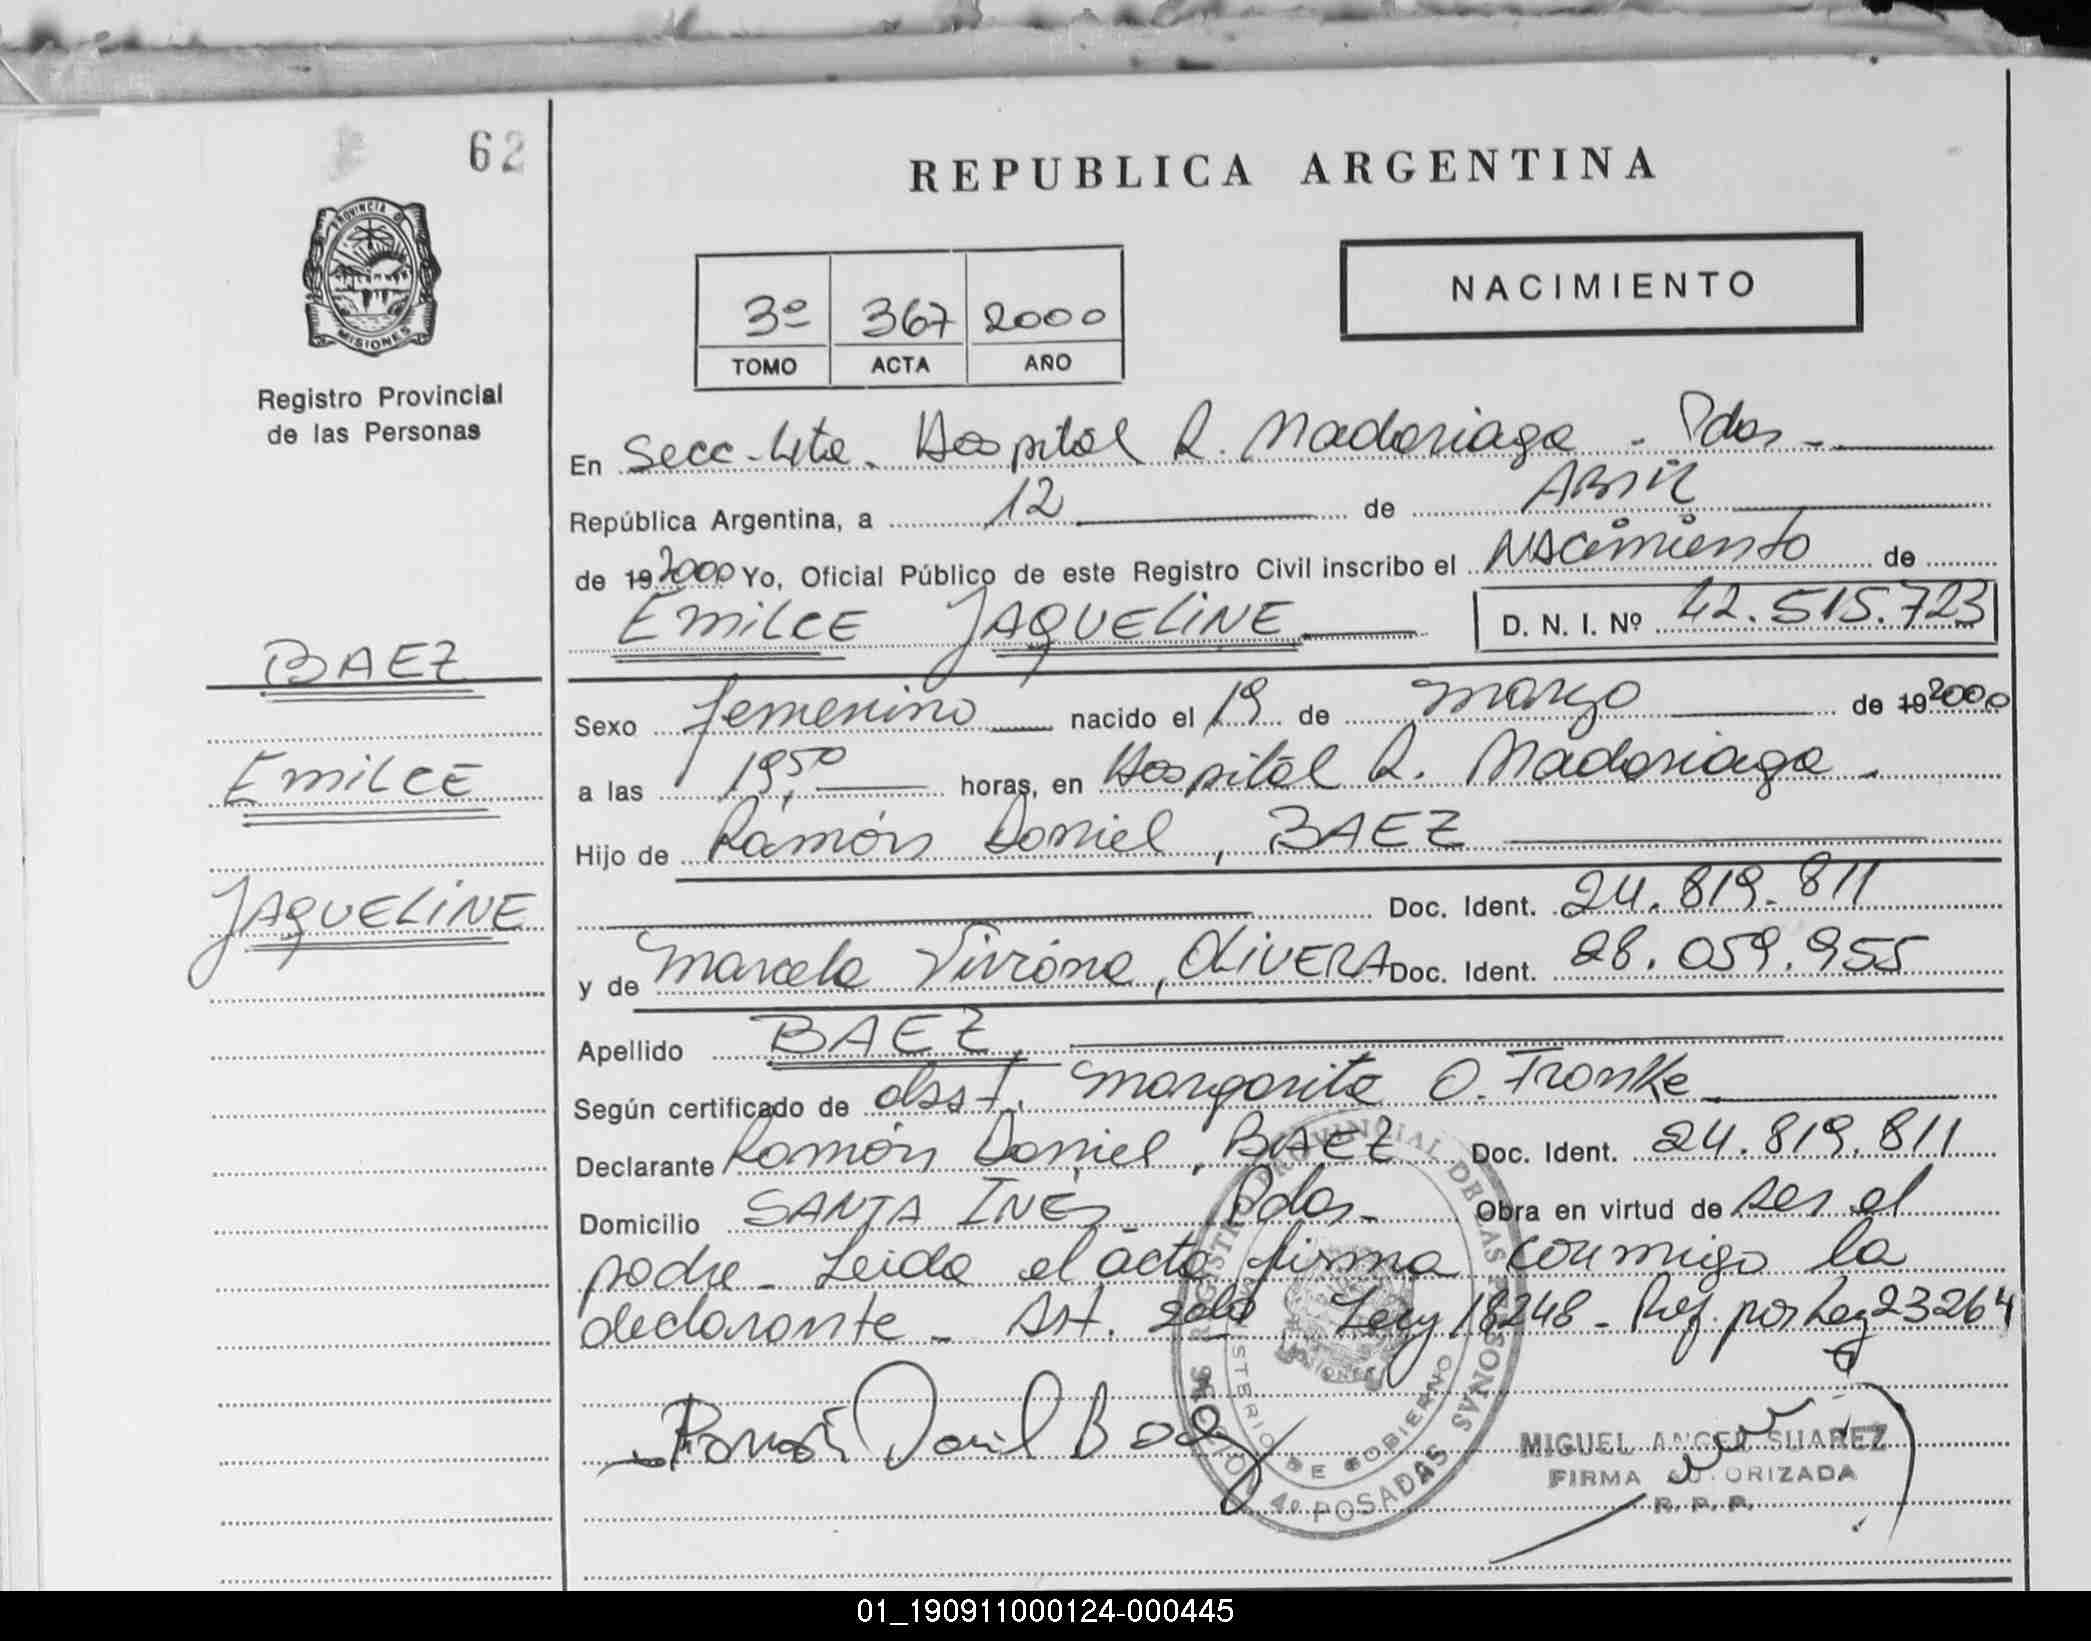 62
REPUBLICA ARGENTINA
PROVINCIA D
MISIONES
NACIMIENTO
3º 367 2000
TOMO ACTA AÑO
Registro Provincial
de las Personas
En Secc. 4ta. Hospital R. Madariaga - Pdas -
República Argentina, a 12 de Abril
de 19 2000 Yo, Oficial Público de este Registro Civil inscribo el Nacimiento de
EMILCE JAQUELINE D. N. I. Nº 42.515.723
BAEZ
Sexo femenino nacido el 19 de marzo de 19 2000
EMILCE
a las 19,50 horas, en Hospital R. Madariaga.
Hijo de Ramón Daniel, BAEZ
JAQUELINE
Doc. Ident. 24.819.811
y de Marcela Viviana, OLIVERA Doc. Ident. 28.059.955
Apellido BAEZ
Según certificado de Obst. Margarita O. Fronke
Declarante Ramón Daniel, BAEZ Doc. Ident. 24.819.811
Domicilio SANTA INÉS - Pdas - Obra en virtud de ser el
padre - Leida el acta firma conmigo la
declarante - Art. 2do Ley 18248 - Ref. por Ley 23264
Ramón Daniel Baez
REGISTRO PROVINCIAL DE LAS PERSONAS
MINISTERIO DE GOBIERNO
MISIONES
4º POSADAS
MIGUEL ANGEL SUAREZ
FIRMA AUTORIZADA
R. P. P.
01_190911000124-000445